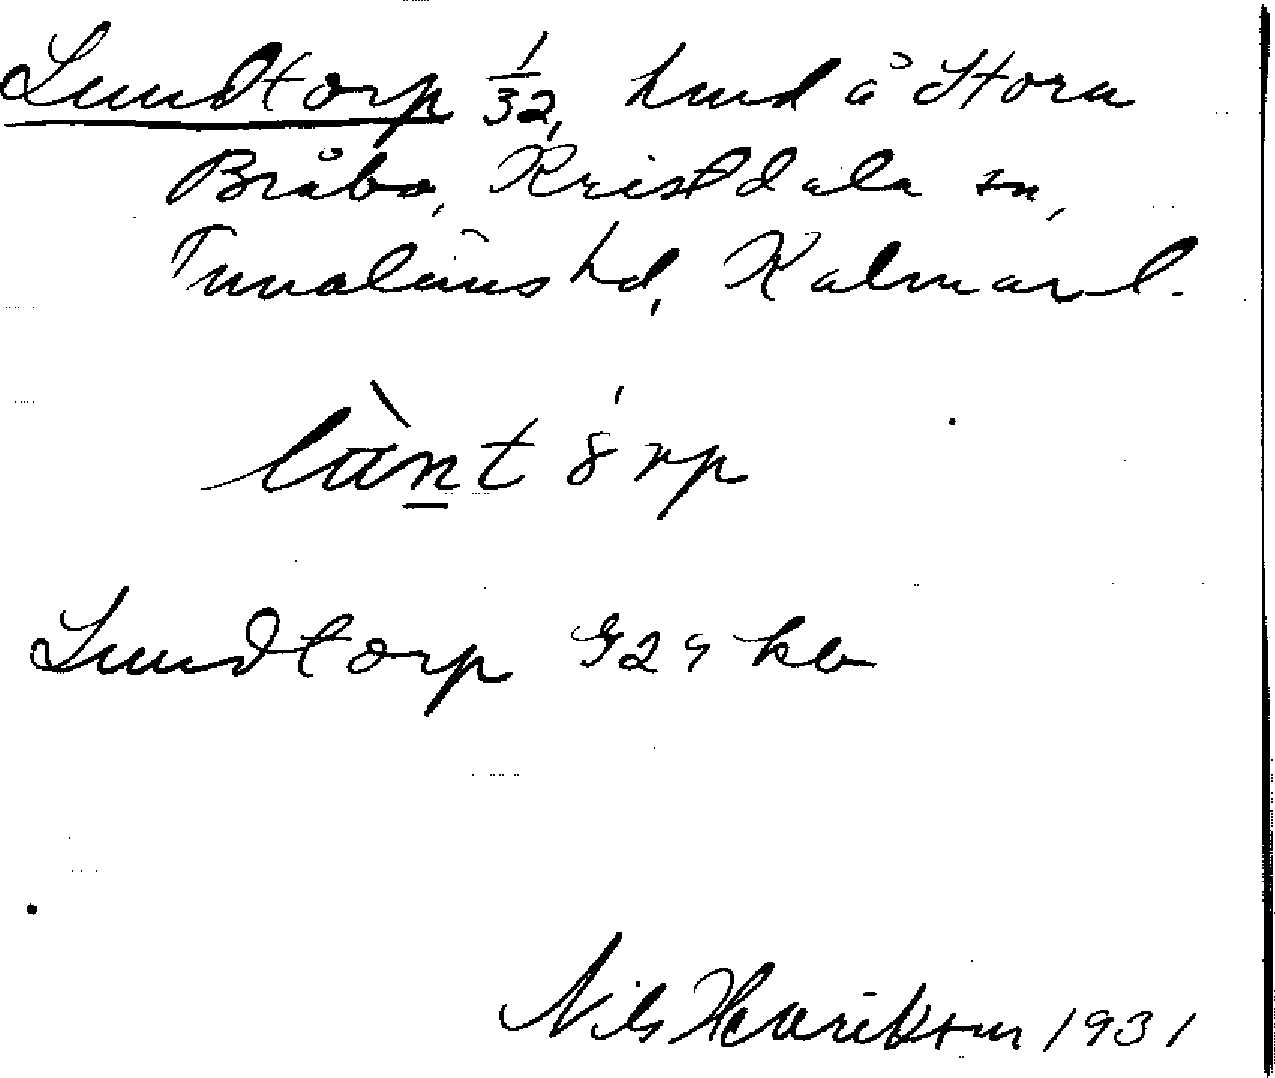 Lundtorp 1/32, hmd å Stora
Bråbo, Kristdala sn,
Tunaläns hd, Kalmar l.
Lundtorp G 29 kb
Nils Henrikson 1931